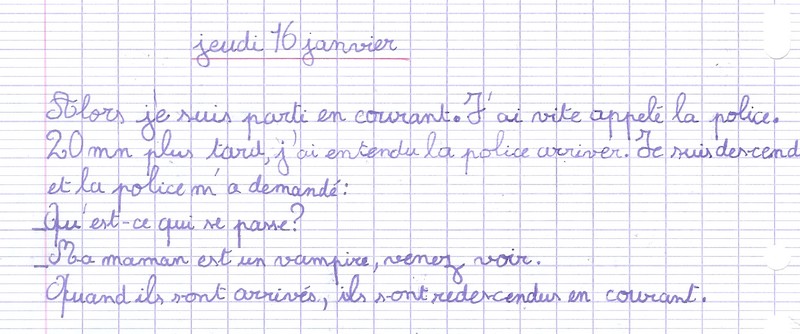 jeudi 16 janvier
Alors je suis parti en courant. J'ai vite appelé la police.
20 mn plus tard, j'ai entendu la police arriver. Je suis descend
et la police m'a demandé :
_ Qu'est-ce qui se passe ?
_ Ma maman est un vampire, venez voir.
Quand ils sont arrivés, ils sont redescendus en courant.